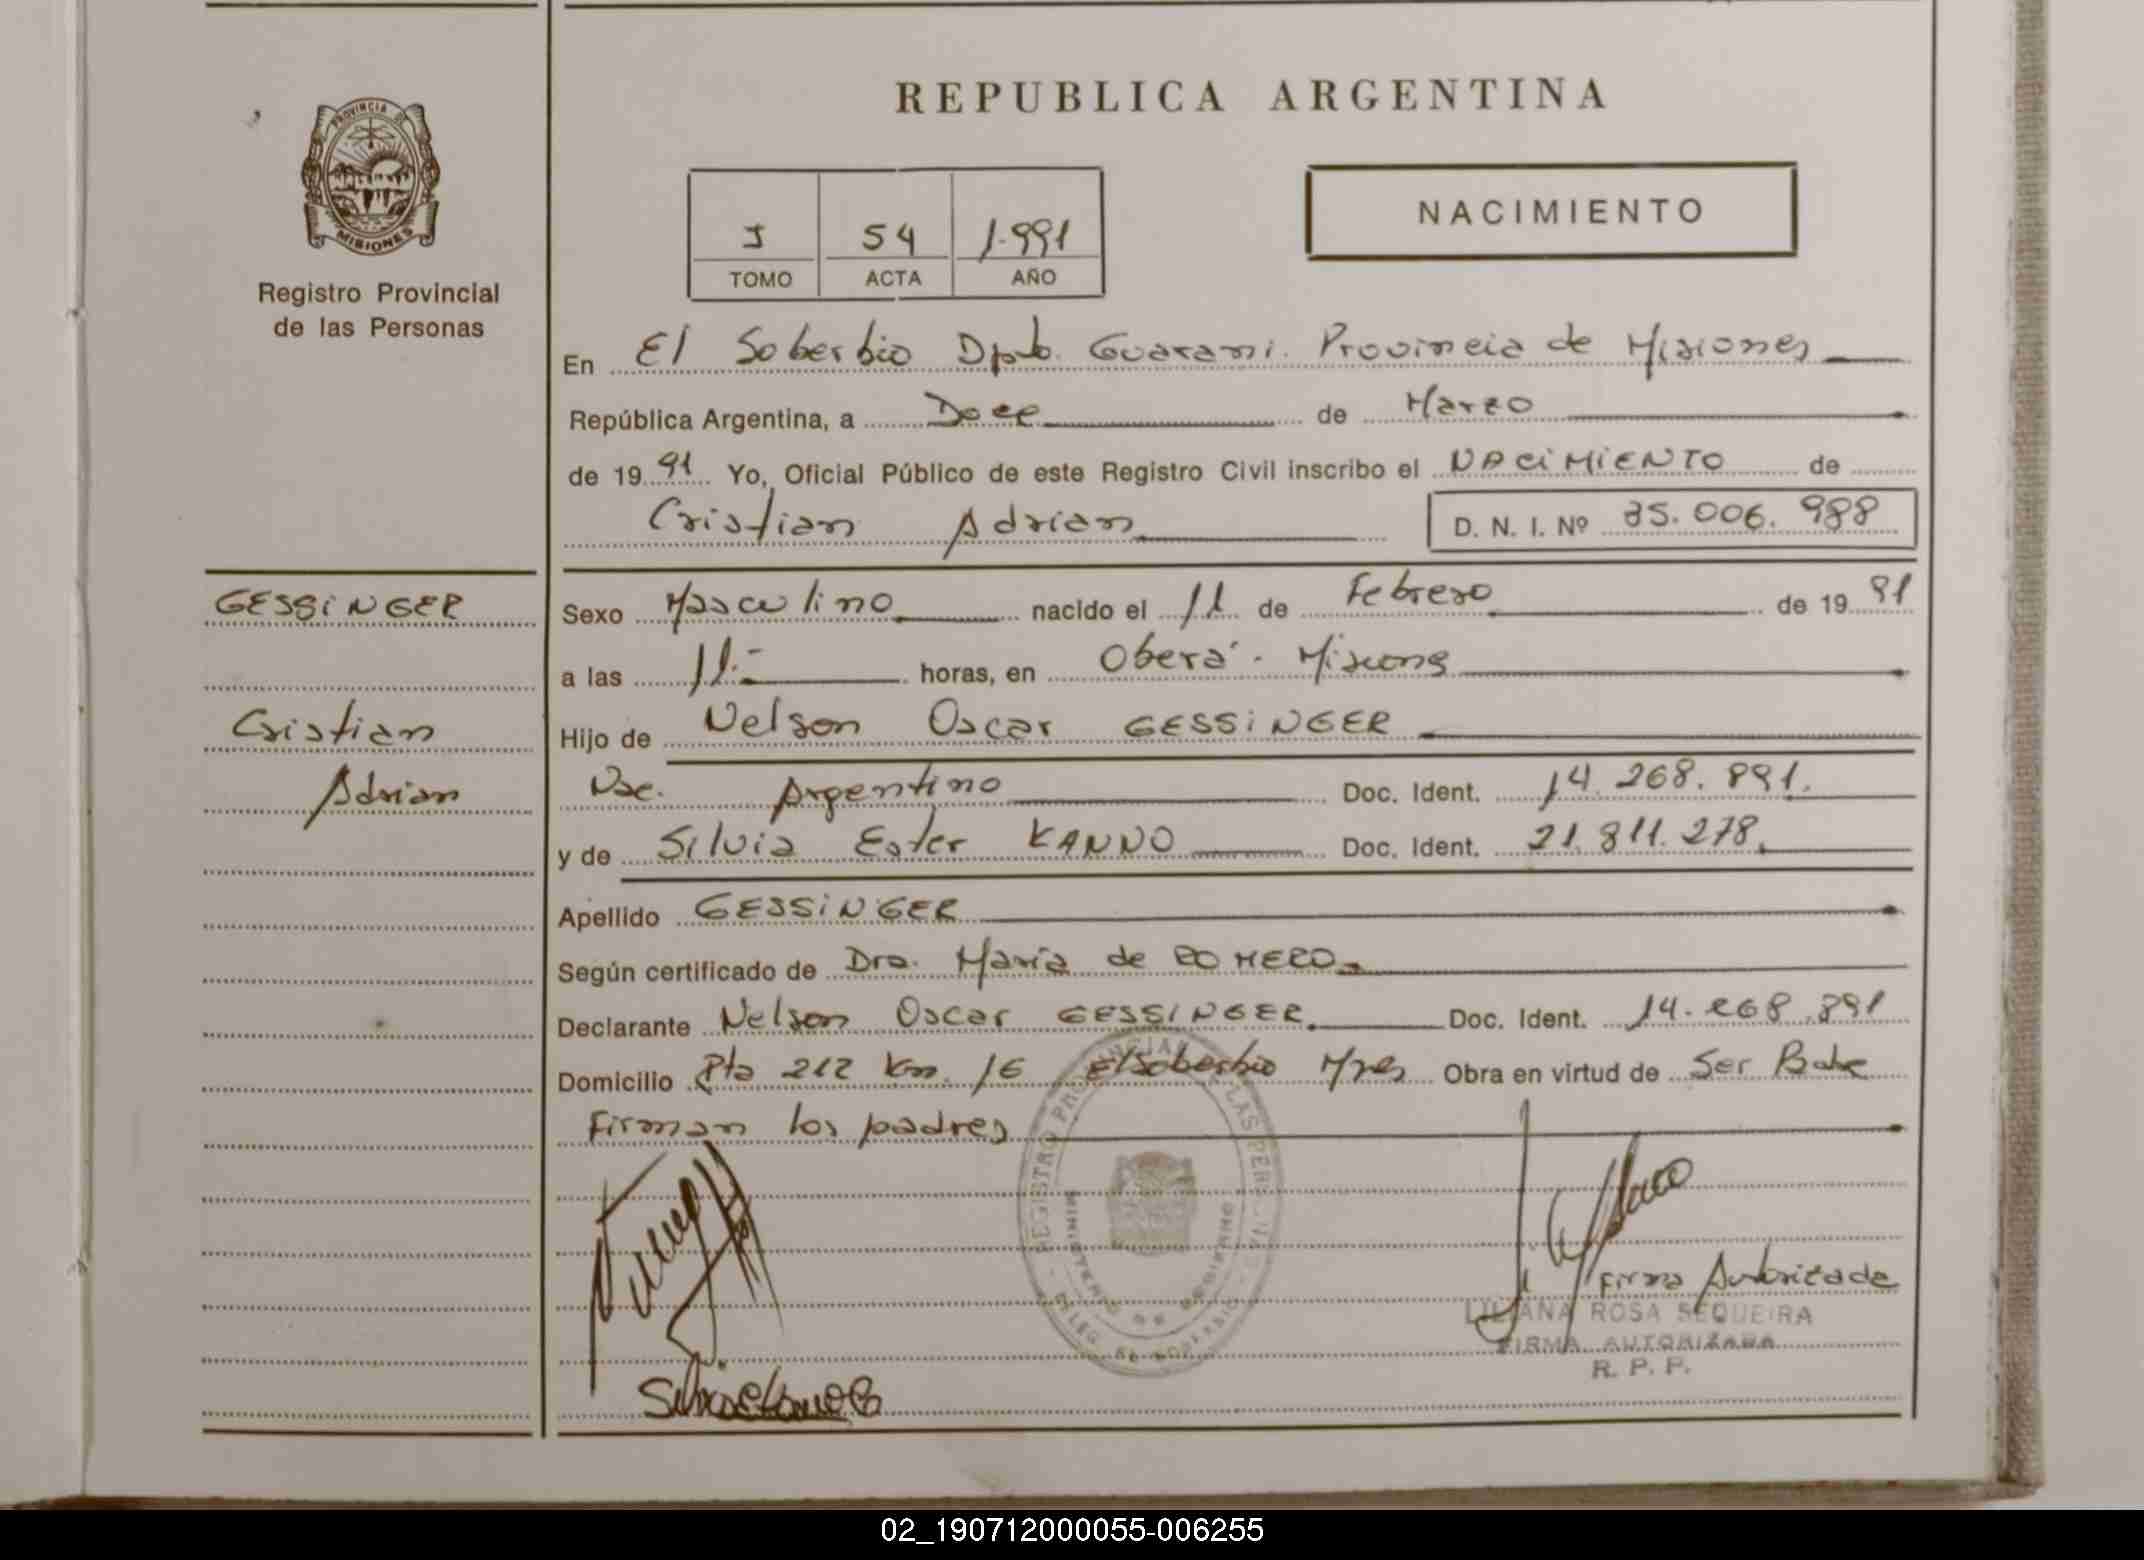 REPUBLICA ARGENTINA
PROVINCIA DE
MISIONES
Registro Provincial
de las Personas
I 54 1.991
TOMO ACTA AÑO
NACIMIENTO
En El Soberbio Dpto. Guarani. Provincia de Misiones
República Argentina, a Doce de Marzo
de 19 91 Yo, Oficial Público de este Registro Civil inscribo el NACIMIENTO de
Cristian Adrian D. N. I. Nº 35.006.988
GESSINGER
Cristian
Adrian
Sexo Masculino nacido el 11 de Febrero de 19 91
a las 11.- horas, en Oberá - Misiones
Hijo de Nelson Oscar GESSINGER
Nac. Argentino Doc. Ident. 14.268.891.
y de Silvia Ester KANNO Doc. Ident. 21.811.278.
Apellido GESSINGER
Según certificado de Dra. María de ROMERO
Declarante Nelson Oscar GESSINGER. Doc. Ident. 14.268.891
Domicilio Rta 212 Km. 16 El Soberbio Mnes Obra en virtud de Ser Padre
Firman los padres
REGISTRO PROVINCIAL DE LAS PERSONAS
MINISTERIO DE GOBIERNO
DELEG. EL SOBERBIO
Firma Autorizada
LILIANA ROSA SEQUEIRA
FIRMA AUTORIZADA
R. P. P.
02_190712000055-006255